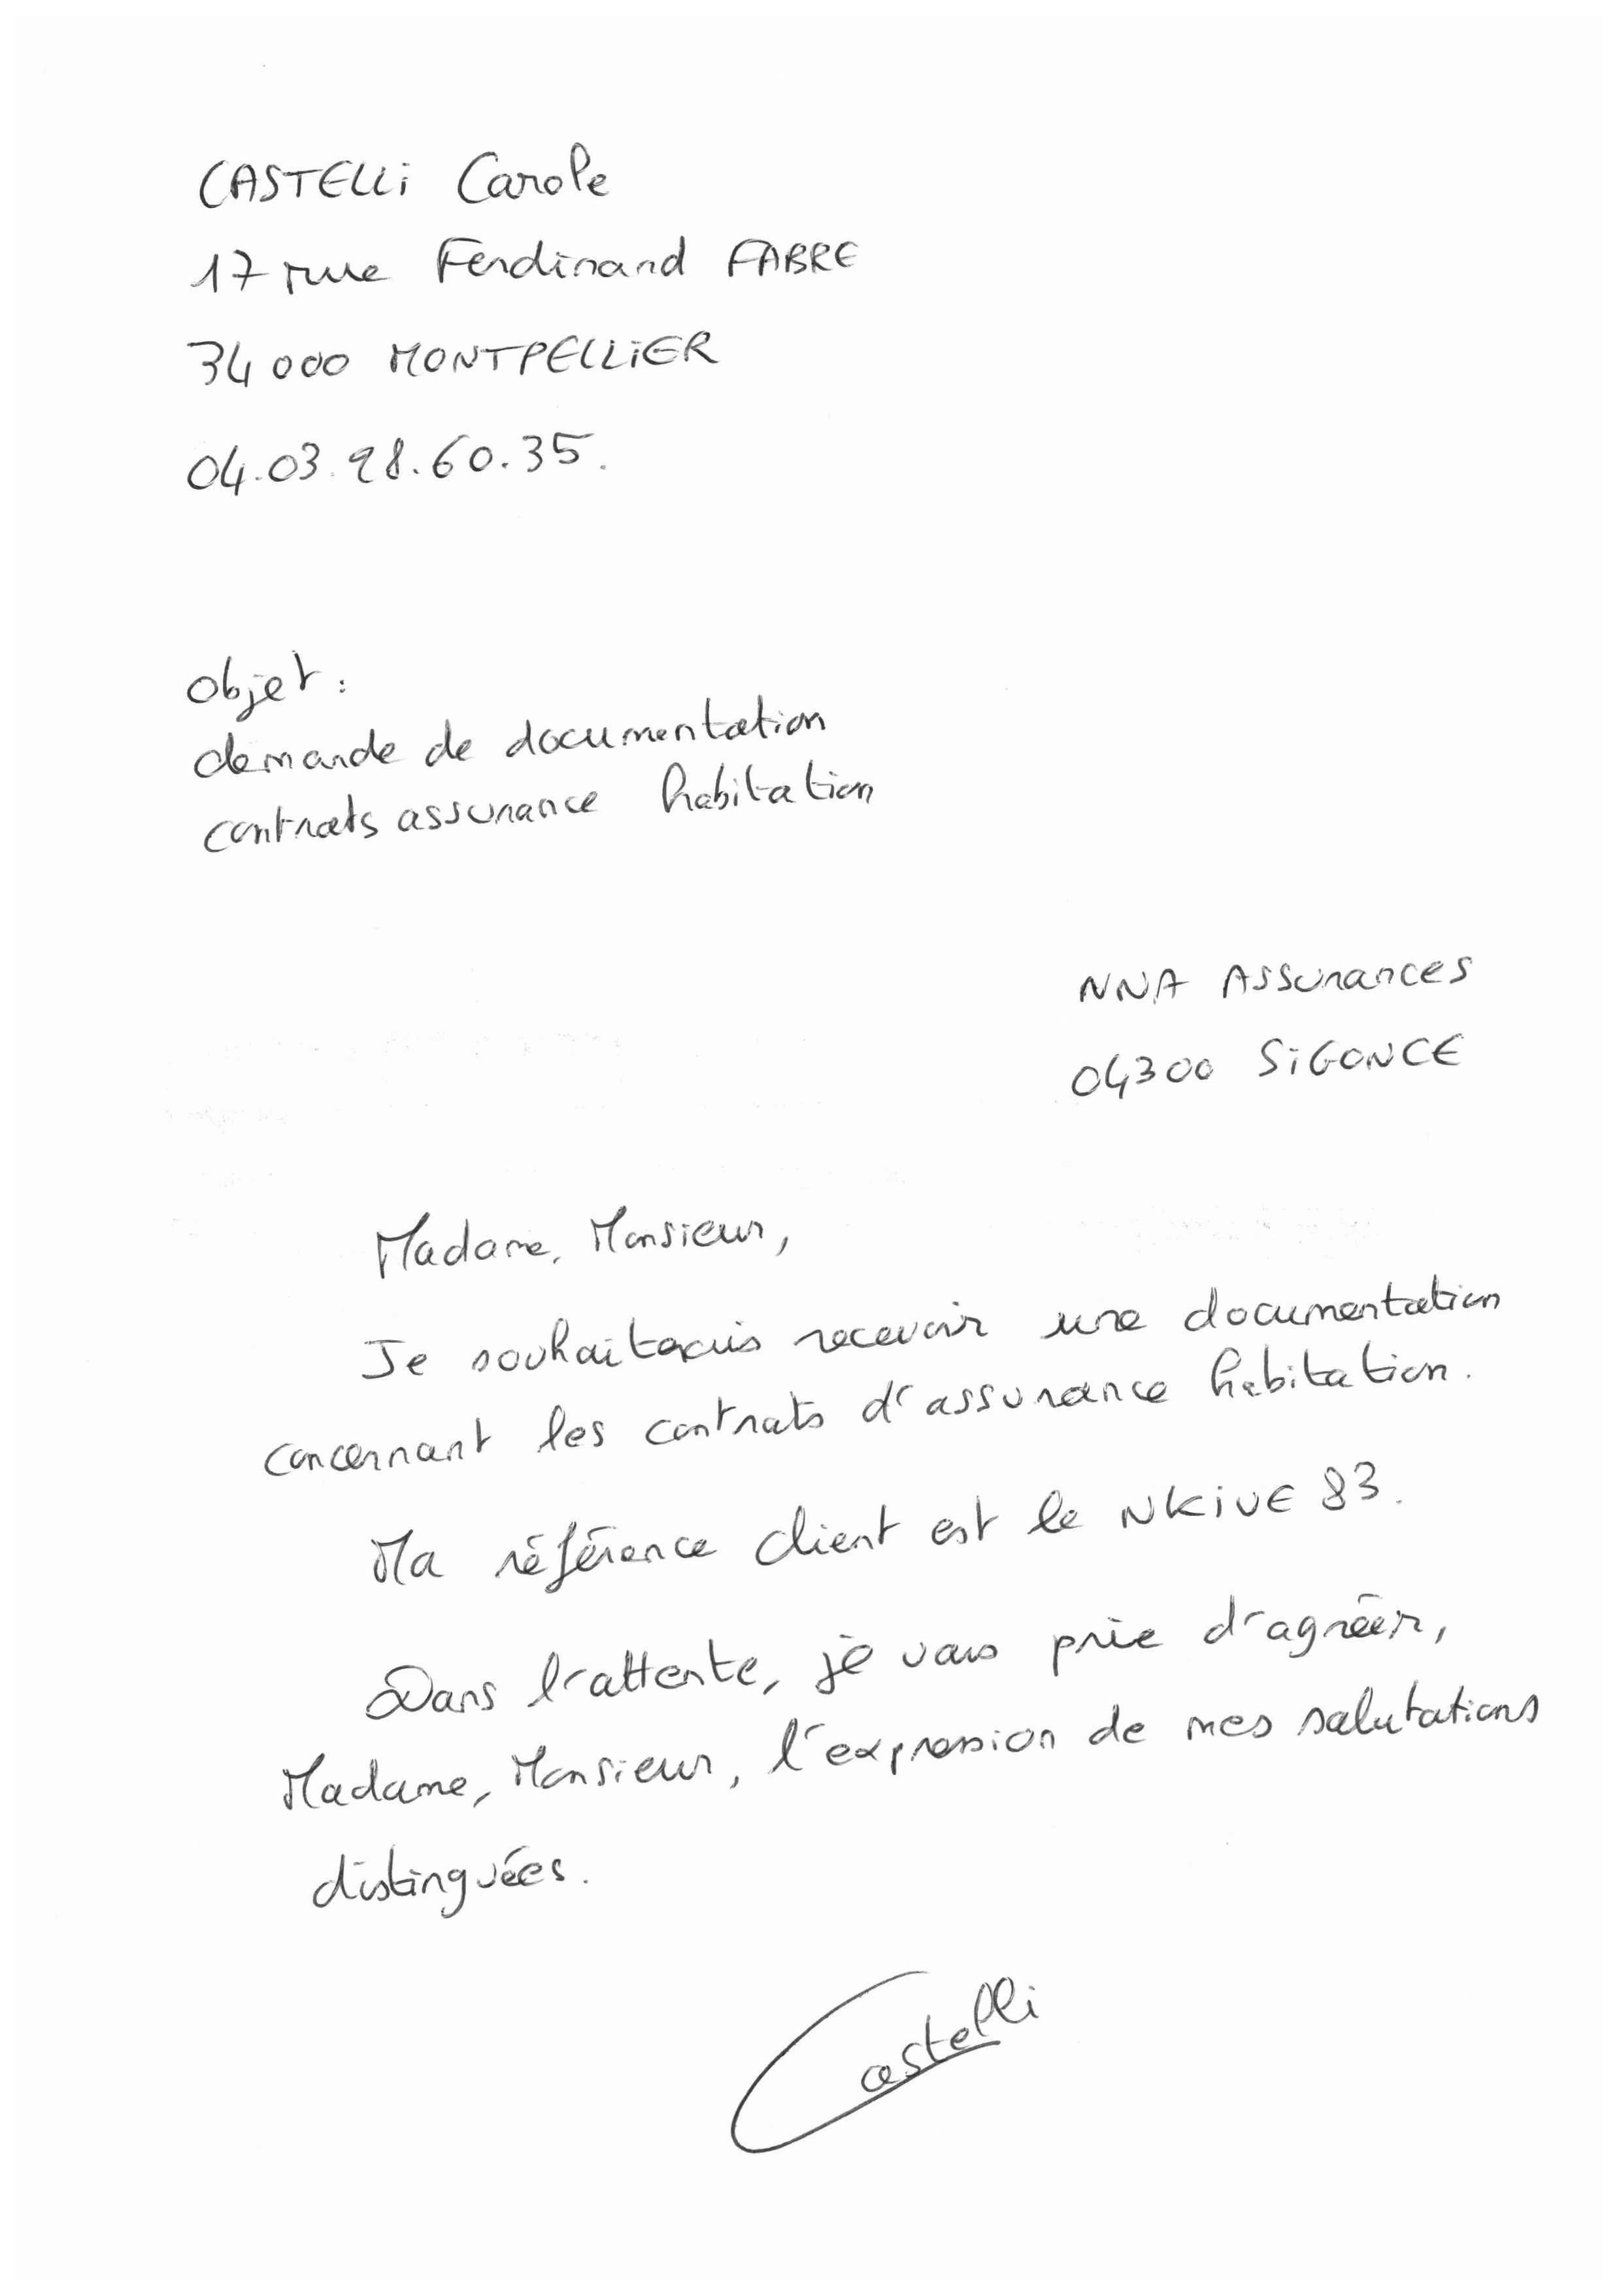 CASTELLi Carole
17 rue Ferdinand FABRE
34000 MONTPELLiER
04.03.98.60.35.
Objet :
demande de documentation
contrats assurance habitation
NNA Assurances
04300 SiGONCE
Madame, Monsieur,
Je souhaiterais recevoir une documentation
concernant les contrats d'assurance habitation.
Ma référence client est le NKiVE 83.
Dans l'attente, je vous prie d'agréer,
Madame, Monsieur, l'expression de mes salutations
distinguées.
Castelli